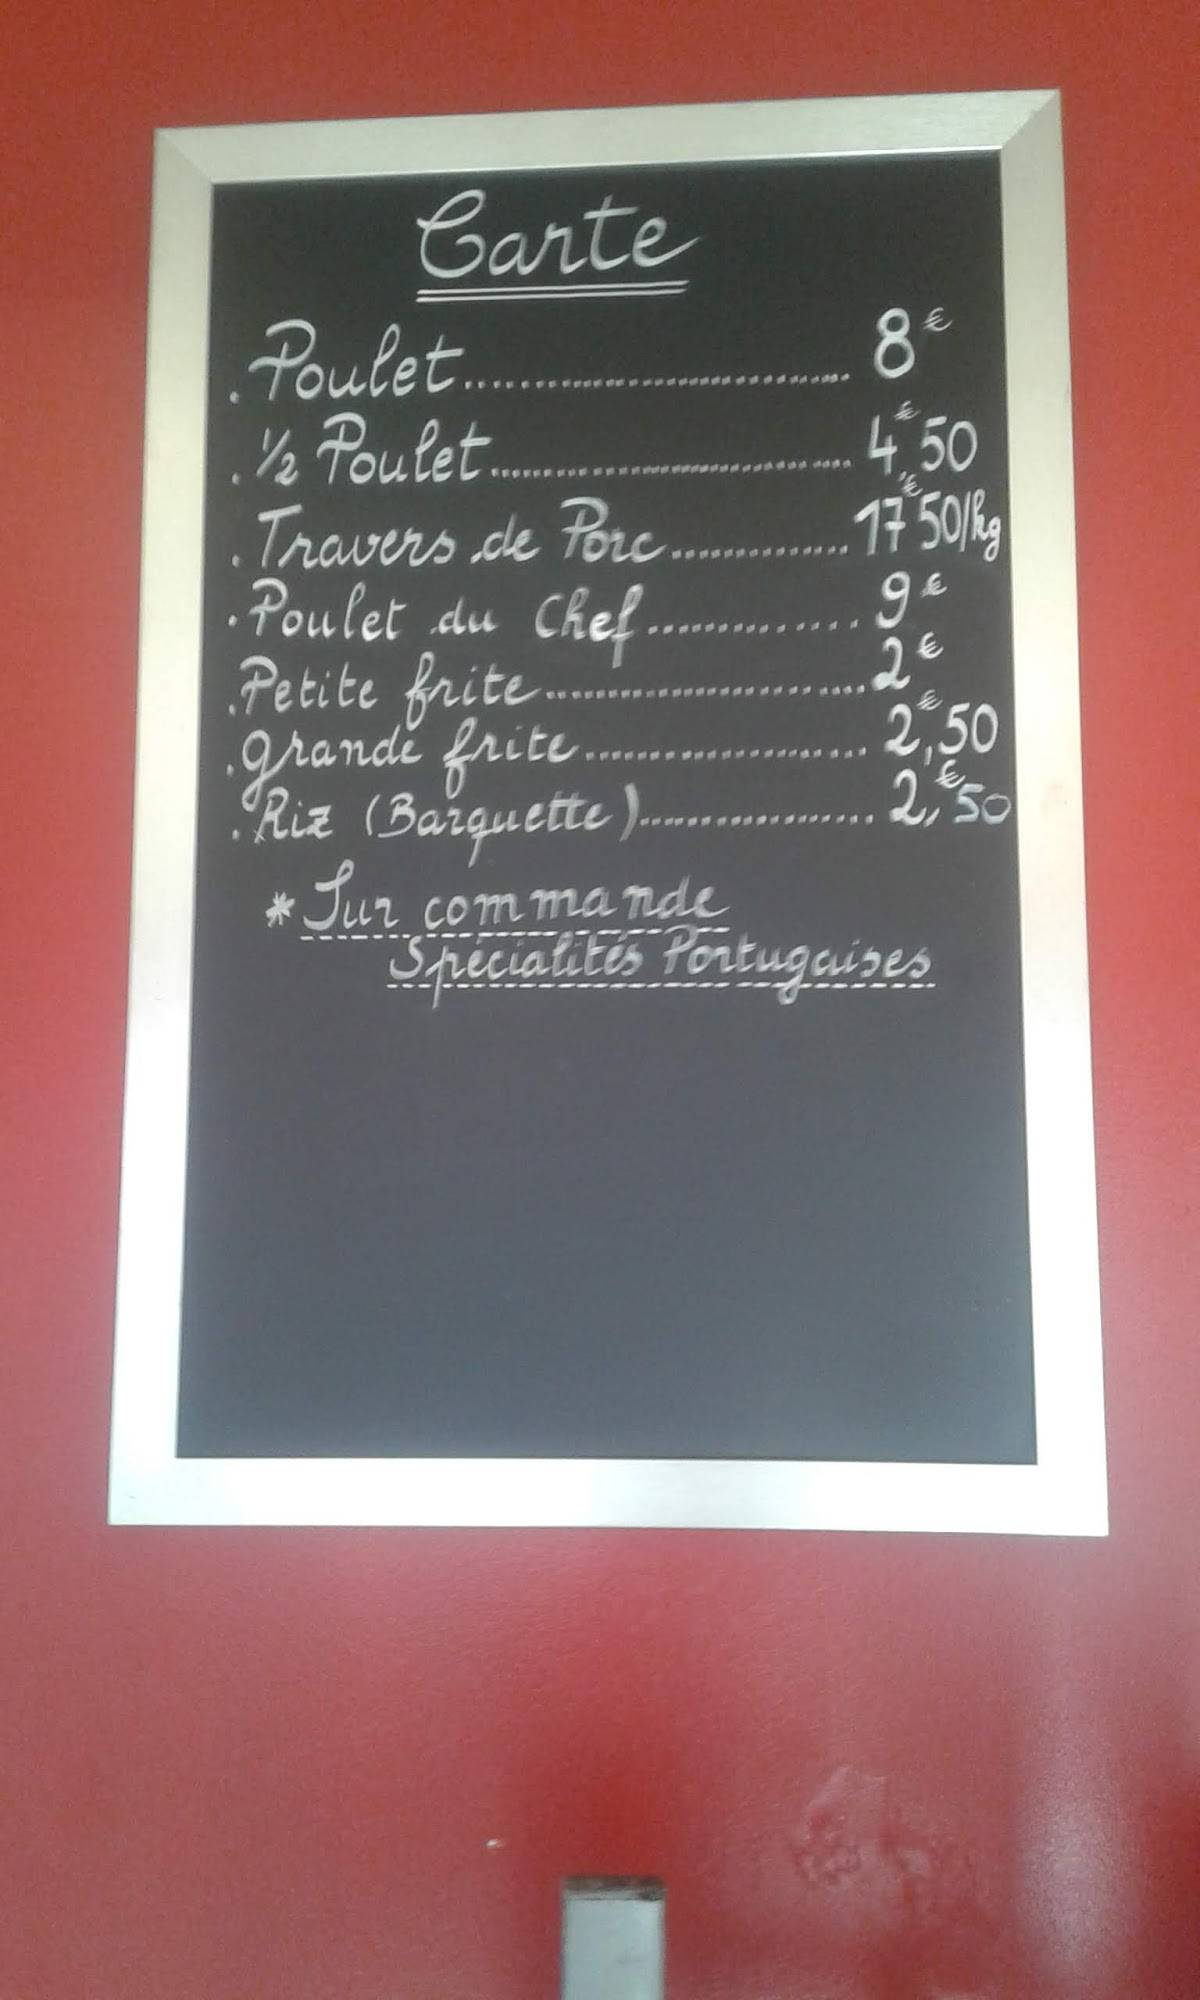 Carte
. Poulet.............................. 8€
. 1/2 Poulet.............................. 4€,50
. Travers de Porc.............. 17€50/kg
. Poulet du Chef.............. 9€
. Petite frite......................... 2€
. grande frite..................... 2€,50
. Riz (Barquette).................. 2,€50
* Sur commande
Spécialités Portugaises